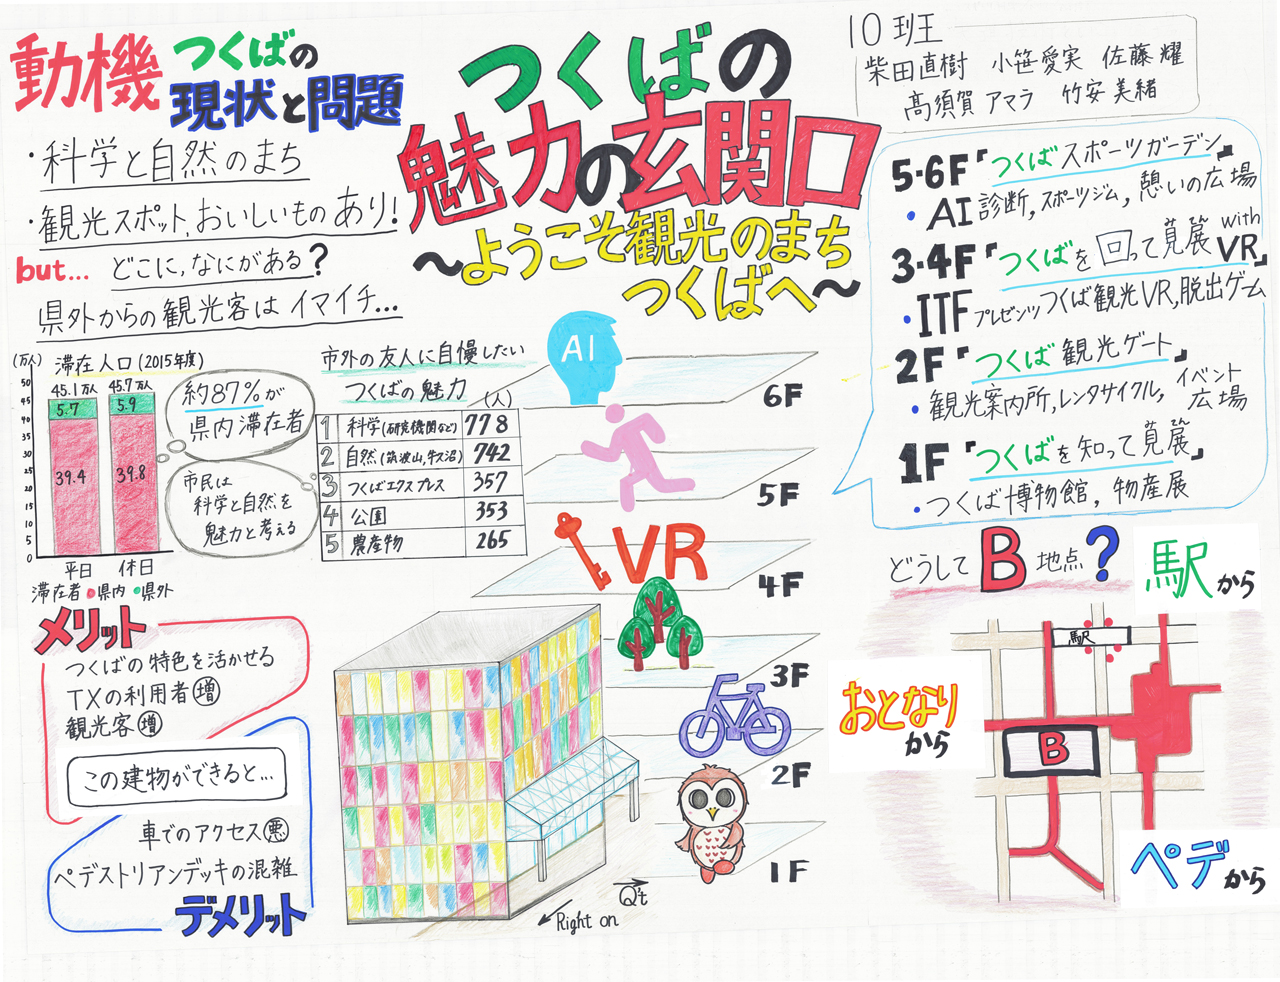 動機 つくばの
現状と問題
・科学と自然のまち
・観光スポット,おいしいものあり!
but... どこに,なにがある?
県外からの観光客はイマイチ...
つくばの
魅力の玄関口
～ようこそ観光のまち
つくばへ～
10班
柴田直樹 小笹愛実 佐藤耀
髙須賀アマラ 竹安美緒
(万人) 滞在人口(2015年度)
45.1万人 45.7万人
5.7 5.9
39.4 39.8
50
45
40
35
30
25
20
15
10
5
0
平日 休日
滞在者 ●県内 ●県外
約87%が
県内滞在者
市民は
科学と自然を
魅力と考える
市外の友人に自慢したい
つくばの魅力 (人)
1 科学(研究機関など) 778
2 自然(筑波山,牛久沼) 742
3 つくばエクスプレス 357
4 公園 353
5 農産物 265
メリット
つくばの特色を活かせる
TXの利用者増
観光客増
この建物ができると...
車でのアクセス悪
ペデストリアンデッキの混雑
デメリット
AI
6F
5F
VR
4F
3F
2F
1F
Q't
Right on
5・6F「つくばスポーツガーデン」
・AI診断,スポーツジム,憩いの広場
3・4F「つくばを回って見展 with VR」
・ITFプレゼンツつくば観光VR,脱出ゲーム
2F「つくば観光ゲート」
・観光案内所,レンタサイクル,イベント広場
1F「つくばを知って見展」
・つくば博物館,物産展
どうしてB地点?
駅から
駅
おとなりから
B
ペデから